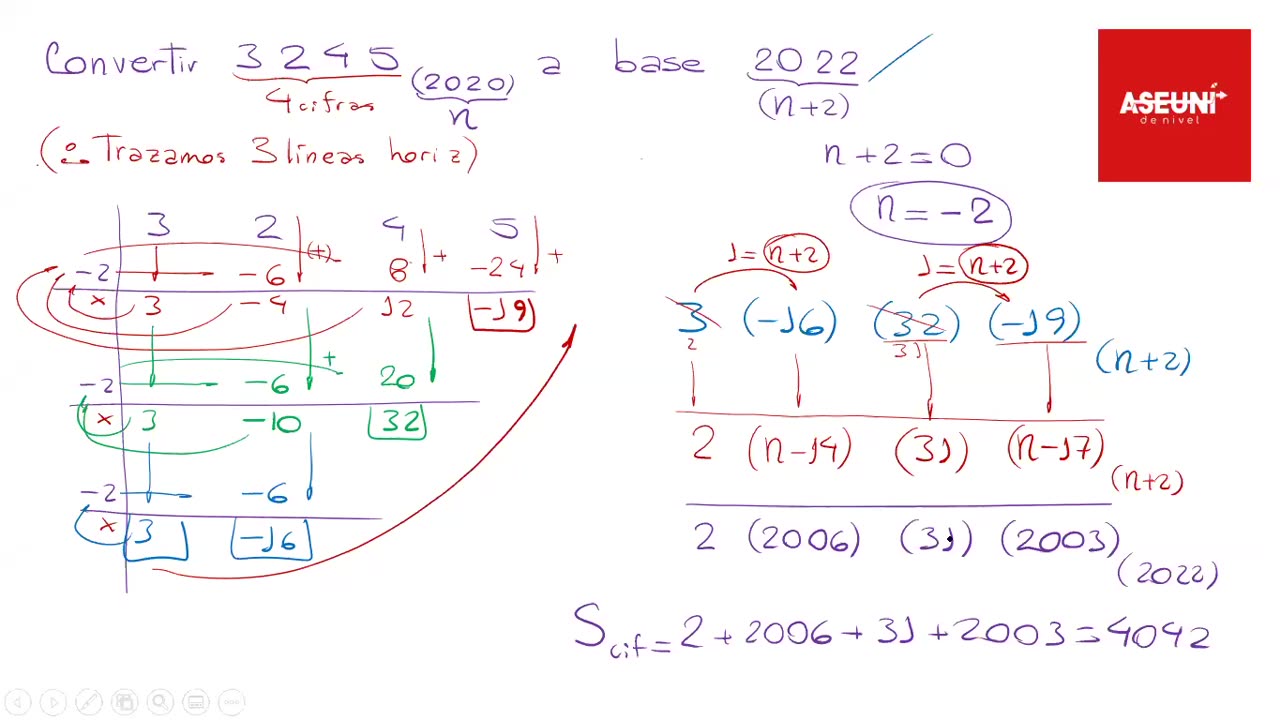 Convertir 3 2 4 5 (2020) a base 2022
4 cifras n (n+2)
ASEUNI
de nivel
(∴ Trazamos 3 líneas horiz)
n+2=0
n=-2
3 2 4 5
(+) + +
-2 -6 8 -24
x 3 -4 12 -19
+
-2 -6 20
x 3 -10 32
-2 -6
x 3 -16
1=n+2 1=n+2
3 (-16) (32) (-19) (n+2)
2 31
2 (n-14) (31) (n-17) (n+2)
2 (2006) (31) (2003) (2022)
Scif=2+2006+31+2003=4042